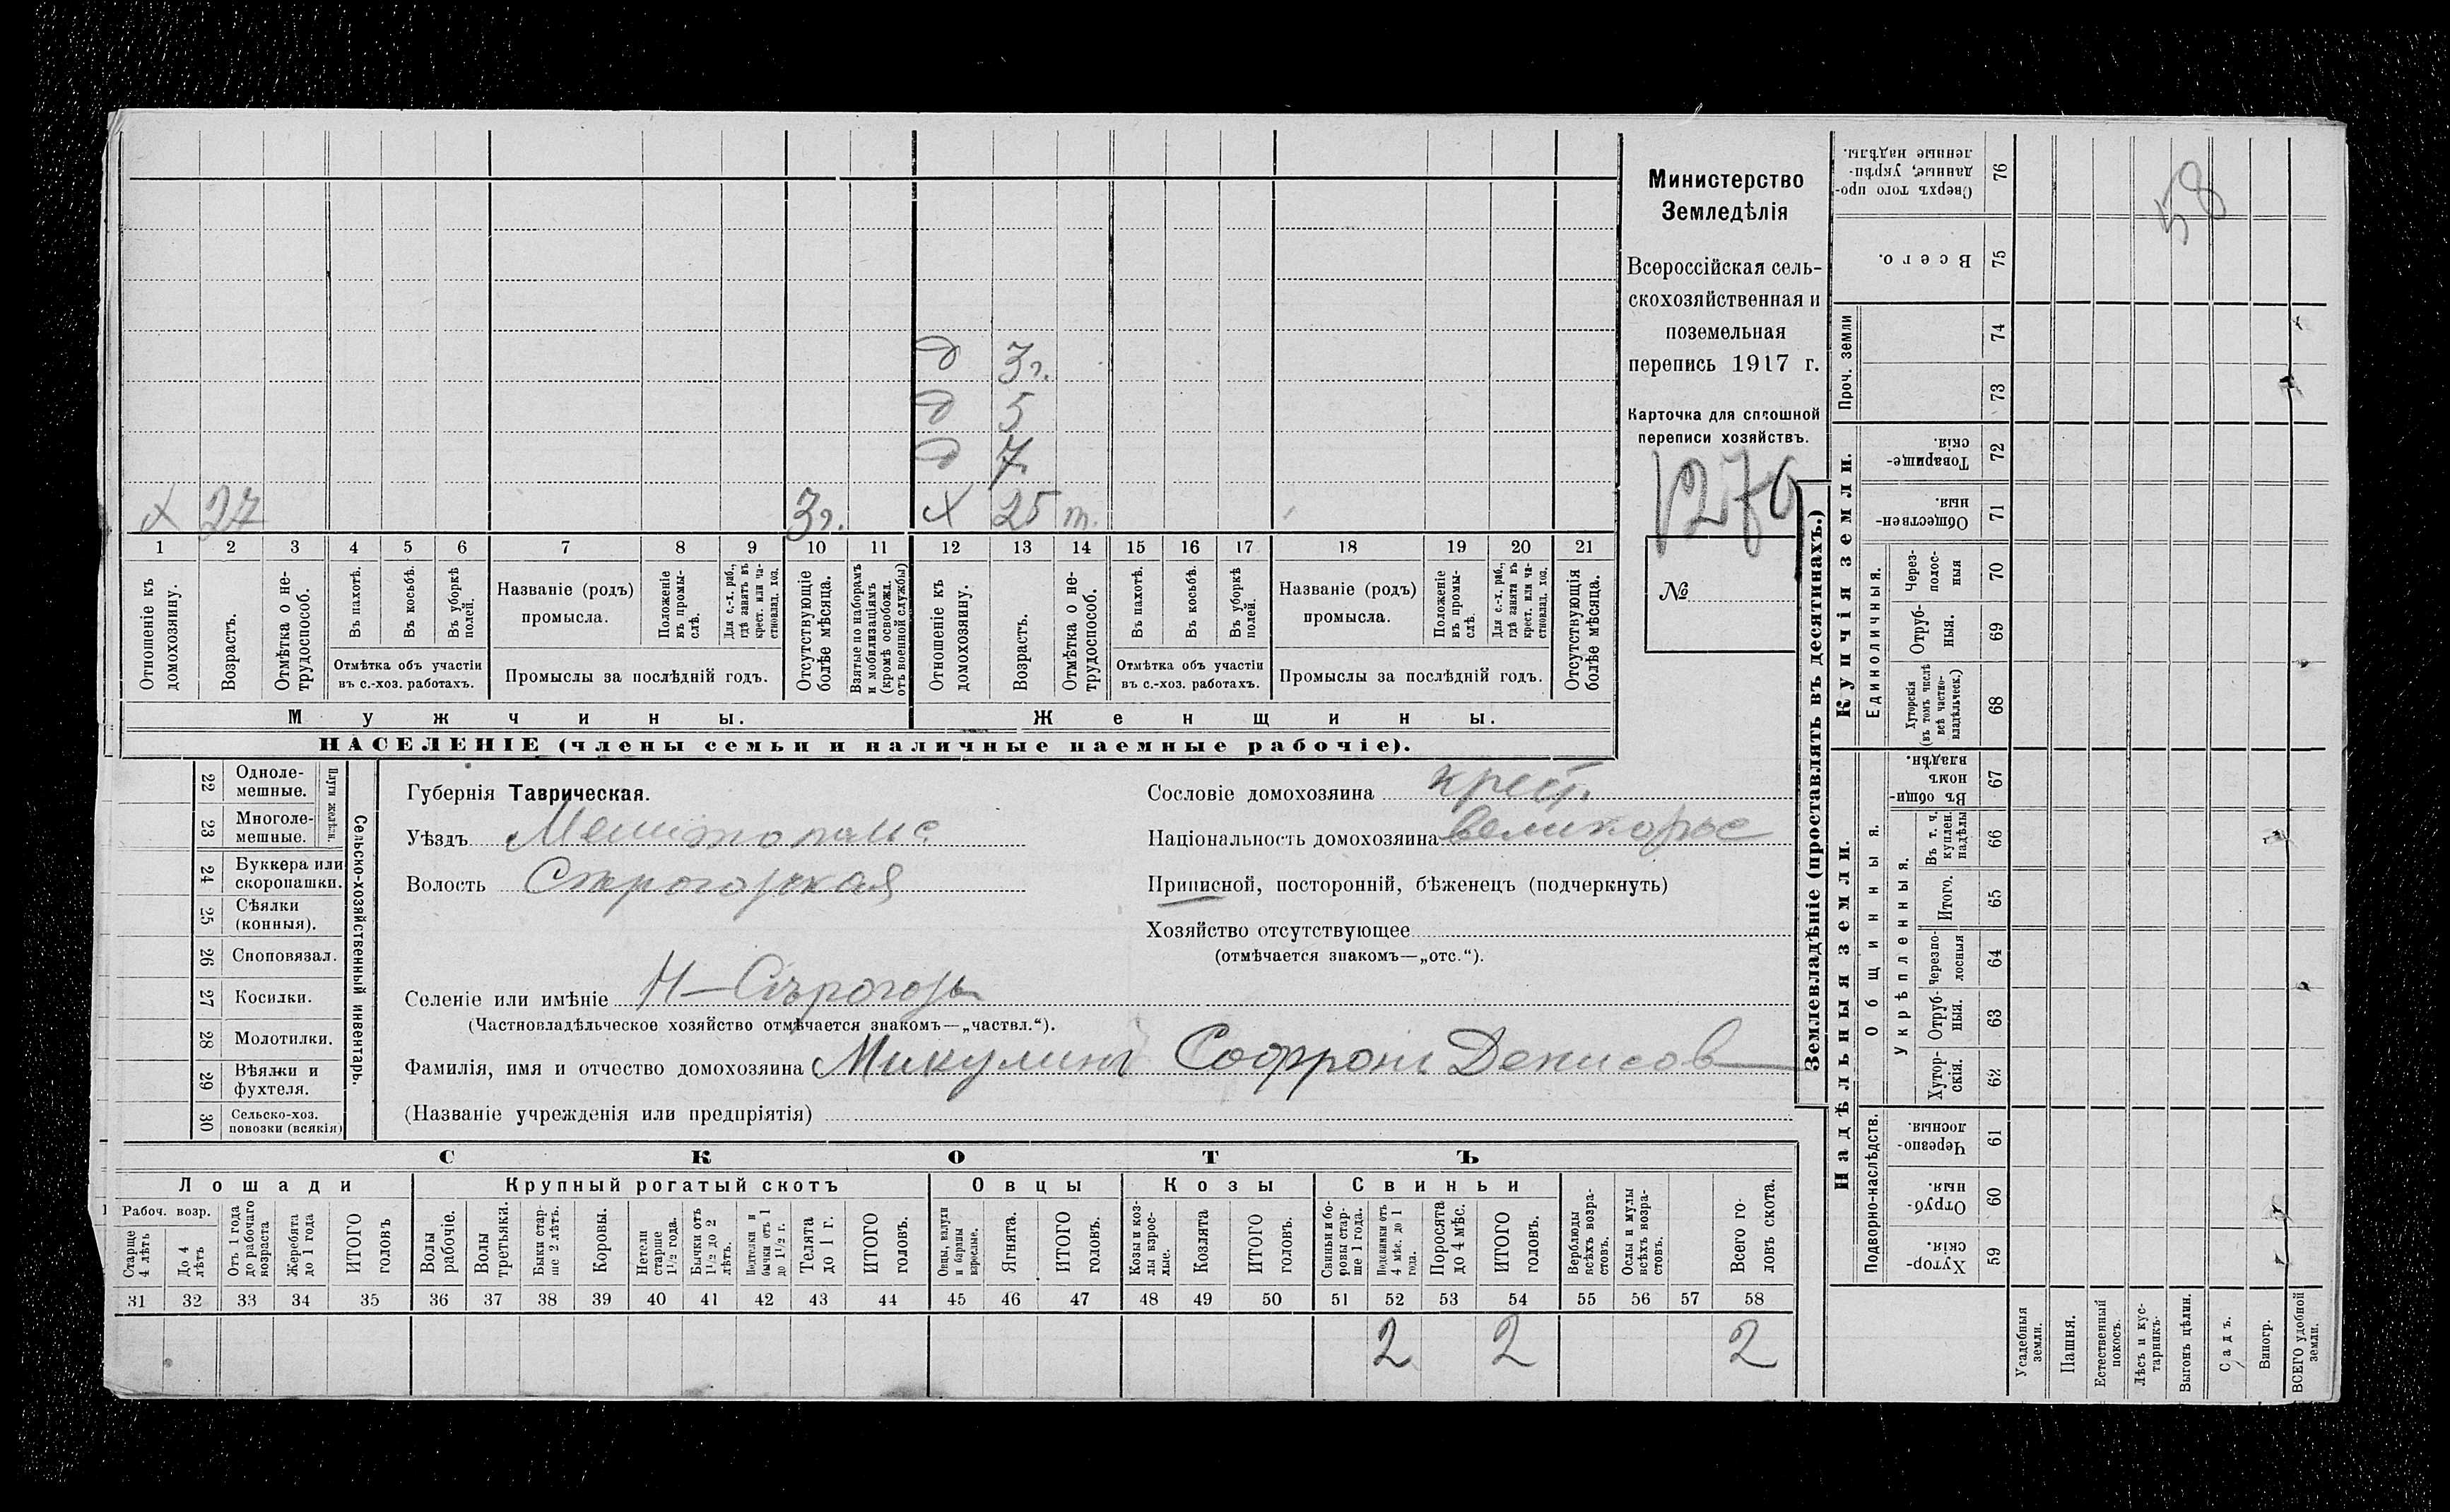 Министерство
Земледѣлія
Всероссійская сель-
скохозяйственная и
поземельная
перепись 1917 г.
Карточка для сплошной
переписи хозяйствъ.
1276
№
58
д 3 г.
д 5
д 7
х 27 3 г. х 25 т.
1 2 3 4 5 6 7 8 9 10 11 12 13 14 15 16 17 18 19 20 21
Отношеніе къ домохозяину.
Возрастъ.
Отмѣтка о не-трудоспособ.
Въ пахотѣ.
Въ косьбѣ.
Въ уборкѣ полей.
Отмѣтка объ участіи
въ с.-хоз. работахъ.
Названіе (родъ)
промысла.
Положеніе въ промы-слѣ.
Для с.-х. раб., гдѣ занятъ въ крест. или ча-стновлад. хоз.
Промыслы за послѣдній годъ.
Отсутствующіе болѣе мѣсяца.
Взятые по наборамъ и мобилизаціямъ (кромѣ освобожд. отъ военной службы)
Отношеніе къ домохозяину.
Возрастъ.
Отмѣтка о не-трудоспособ.
Въ пахотѣ.
Въ косьбѣ.
Въ уборкѣ полей.
Отмѣтка объ участіи
въ с.-хоз. работахъ.
Названіе (родъ)
промысла.
Положеніе въ промы-слѣ.
Для с.-х. раб., гдѣ занята въ крест. или ча-стновлад. хоз.
Промыслы за послѣдній годъ.
Отсутствующія болѣе мѣсяца.
Мужчины. Женщины.
НАСЕЛЕНІЕ (члены семьи и наличные наемные рабочіе).
22 Одноле-мешные.
23 Многоле-мешные.
Плуги желѣзн.
24 Буккера или скоропашки.
25 Сѣялки (конныя).
26 Сноповязал.
27 Косилки.
28 Молотилки.
29 Вѣялки и фухтеля.
30 Сельско-хоз. повозки (всякія)
Сельско-хозяйственный инвентарь.
Губернія Таврическая.
Уѣздъ Мелитопольс
Волость Строгозская
Селеніе или имѣніе Н-Сѣрогозы
(Частновладѣльческое хозяйство отмѣчается знакомъ—„частвл.“).
Фамилія, имя и отчество домохозяина Микулинъ Софронъ Денисов
(Названіе учрежденія или предпріятія)
Сословіе домохозяина крест.
Національность домохозяина великорос
Приписной, посторонній, бѣженецъ (подчеркнуть)
Хозяйство отсутствующее
(отмѣчается знакомъ—„отс.“).
СКОТЪ
Лошади Крупный рогатый скотъ Овцы Козы Свиньи
Рабоч. возр.
Старше 4 лѣтъ
До 4 лѣтъ
Отъ 1 года до рабочаго возраста
Жеребята до 1 года
ИТОГО головъ
Волы рабочіе.
Волы третьяки.
Быки стар-ше 2 лѣтъ.
Коровы.
Нетели старше 1½ года.
Бычки отъ 1½ до 2 лѣтъ.
Подтелки и бычки отъ 1 до 1½ г.
Телята до 1 г.
ИТОГО головъ.
Овцы, валухи и бараны взрослые.
Ягнята.
ИТОГО головъ.
Козы и коз-лы взрос-лые.
Козлята
ИТОГО головъ.
Свиньи и бо-ровы стар-ше 1 года.
Подсвинки отъ 4 мѣс. до 1 года.
Поросята до 4 мѣс.
ИТОГО головъ.
Верблюды всѣхъ возра-стовъ.
Ослы и мулы всѣхъ возра-стовъ.
Всего го-ловъ скота.
31 32 33 34 35 36 37 38 39 40 41 42 43 44 45 46 47 48 49 50 51 52 53 54 55 56 57 58
2 2 2
Землевладѣніе (проставлять въ десятинахъ.)
Надѣльныя земли.
Купчія земли.
Проч. земли
Подворно-наслѣдств.
Общинныя.
Укрѣпленныя.
Единоличныя.
59 Хутор-скія.
60 Отруб-ныя.
61 Черезпо-лосныя.
62 Хутор-скія.
63 Отруб-ныя.
64 Черезпо-лосныя
65 Итого.
66 Въ т. ч. куплен. надѣлы
67 Въ общи-номъ владѣн.
68 Хуторскія (въ томъ числѣ всѣ частно-владѣльческ.)
69 Отруб-ныя.
70 Через-полос-ныя
71 Обществен-ныя.
72 Товарище-скія.
73
74
75 Всего.
76 Сверхъ того про-данные, укрѣп-ленные надѣлы.
Усадебныя земли.
Пашня.
Естественный покосъ.
Лѣсъ и кус-тарникъ.
Выгонъ цѣлин.
Садъ.
Виногр.
ВСЕГО удобной земли.